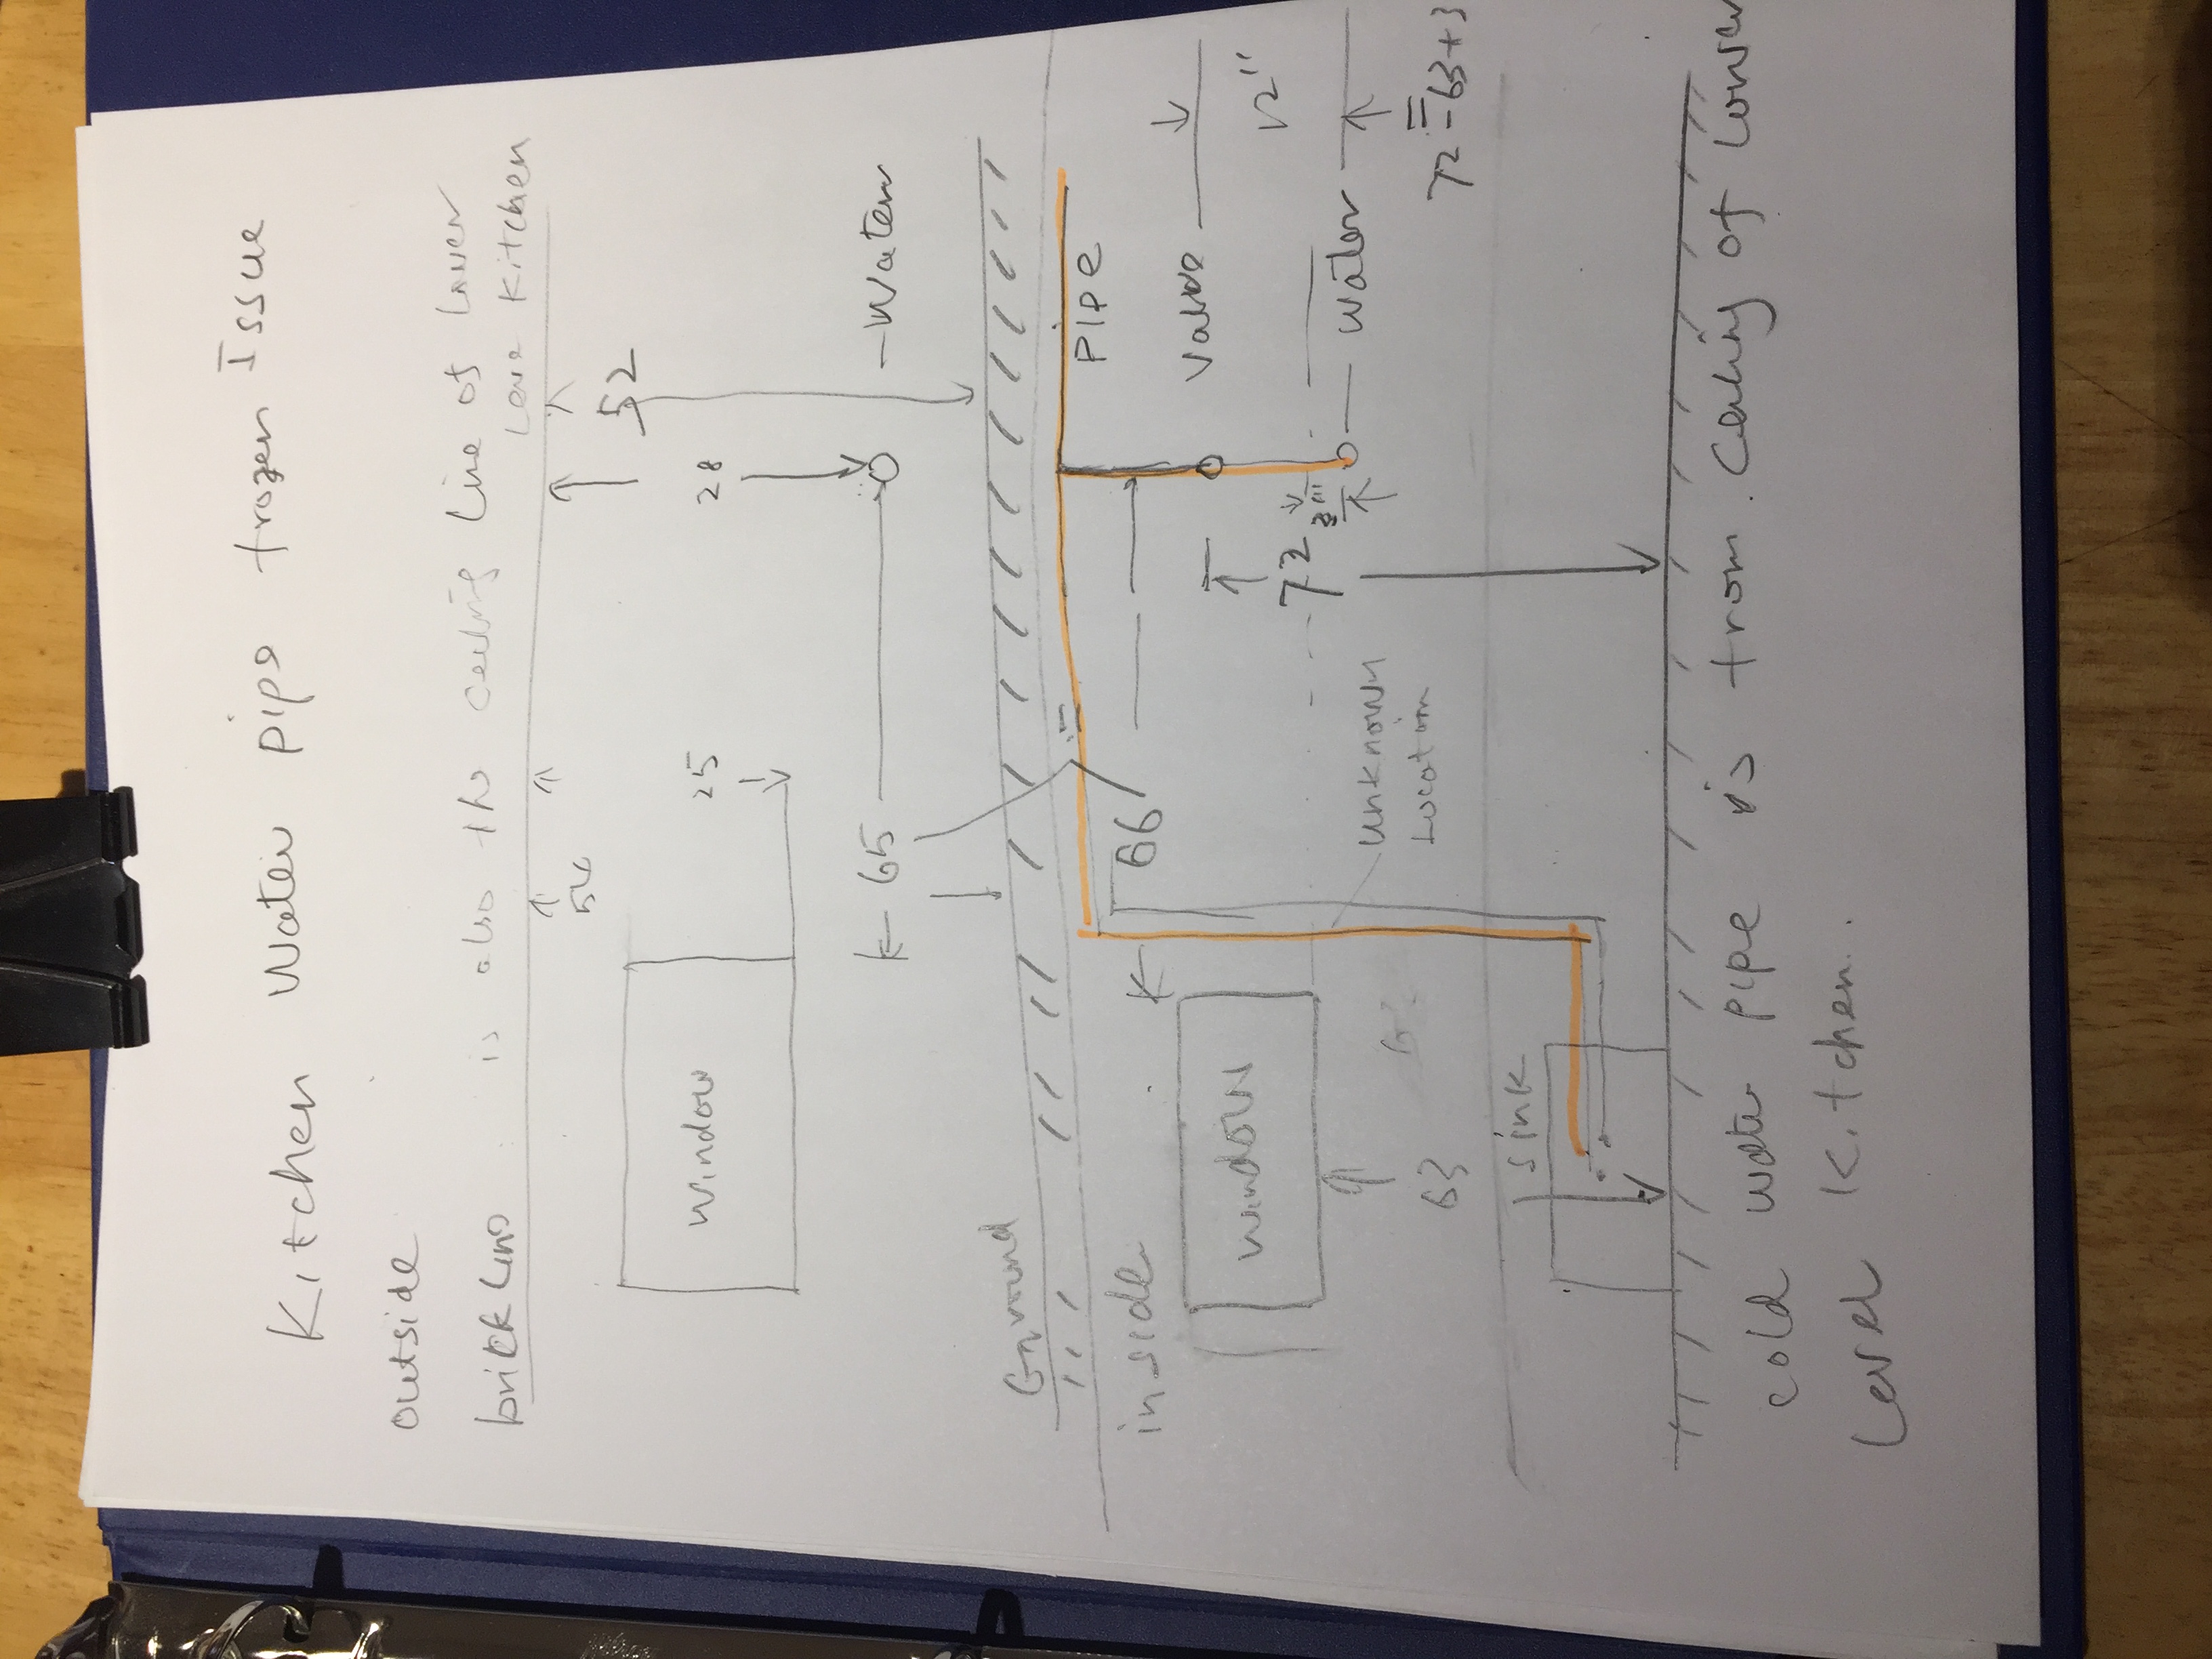 Kitchen Water pipe frozen Issue
outside
brick Line is also the ceiling Line of Lower
Level Kitchen
54
52
25
28
Window
65
Water
Ground
inside
PIPE
66
Valve
12"
Window
72
3"
Water
63
unknown
Location
72 = 63+3
Sink
cold water pipe is from ceiling of Lower
Level Kitchen.